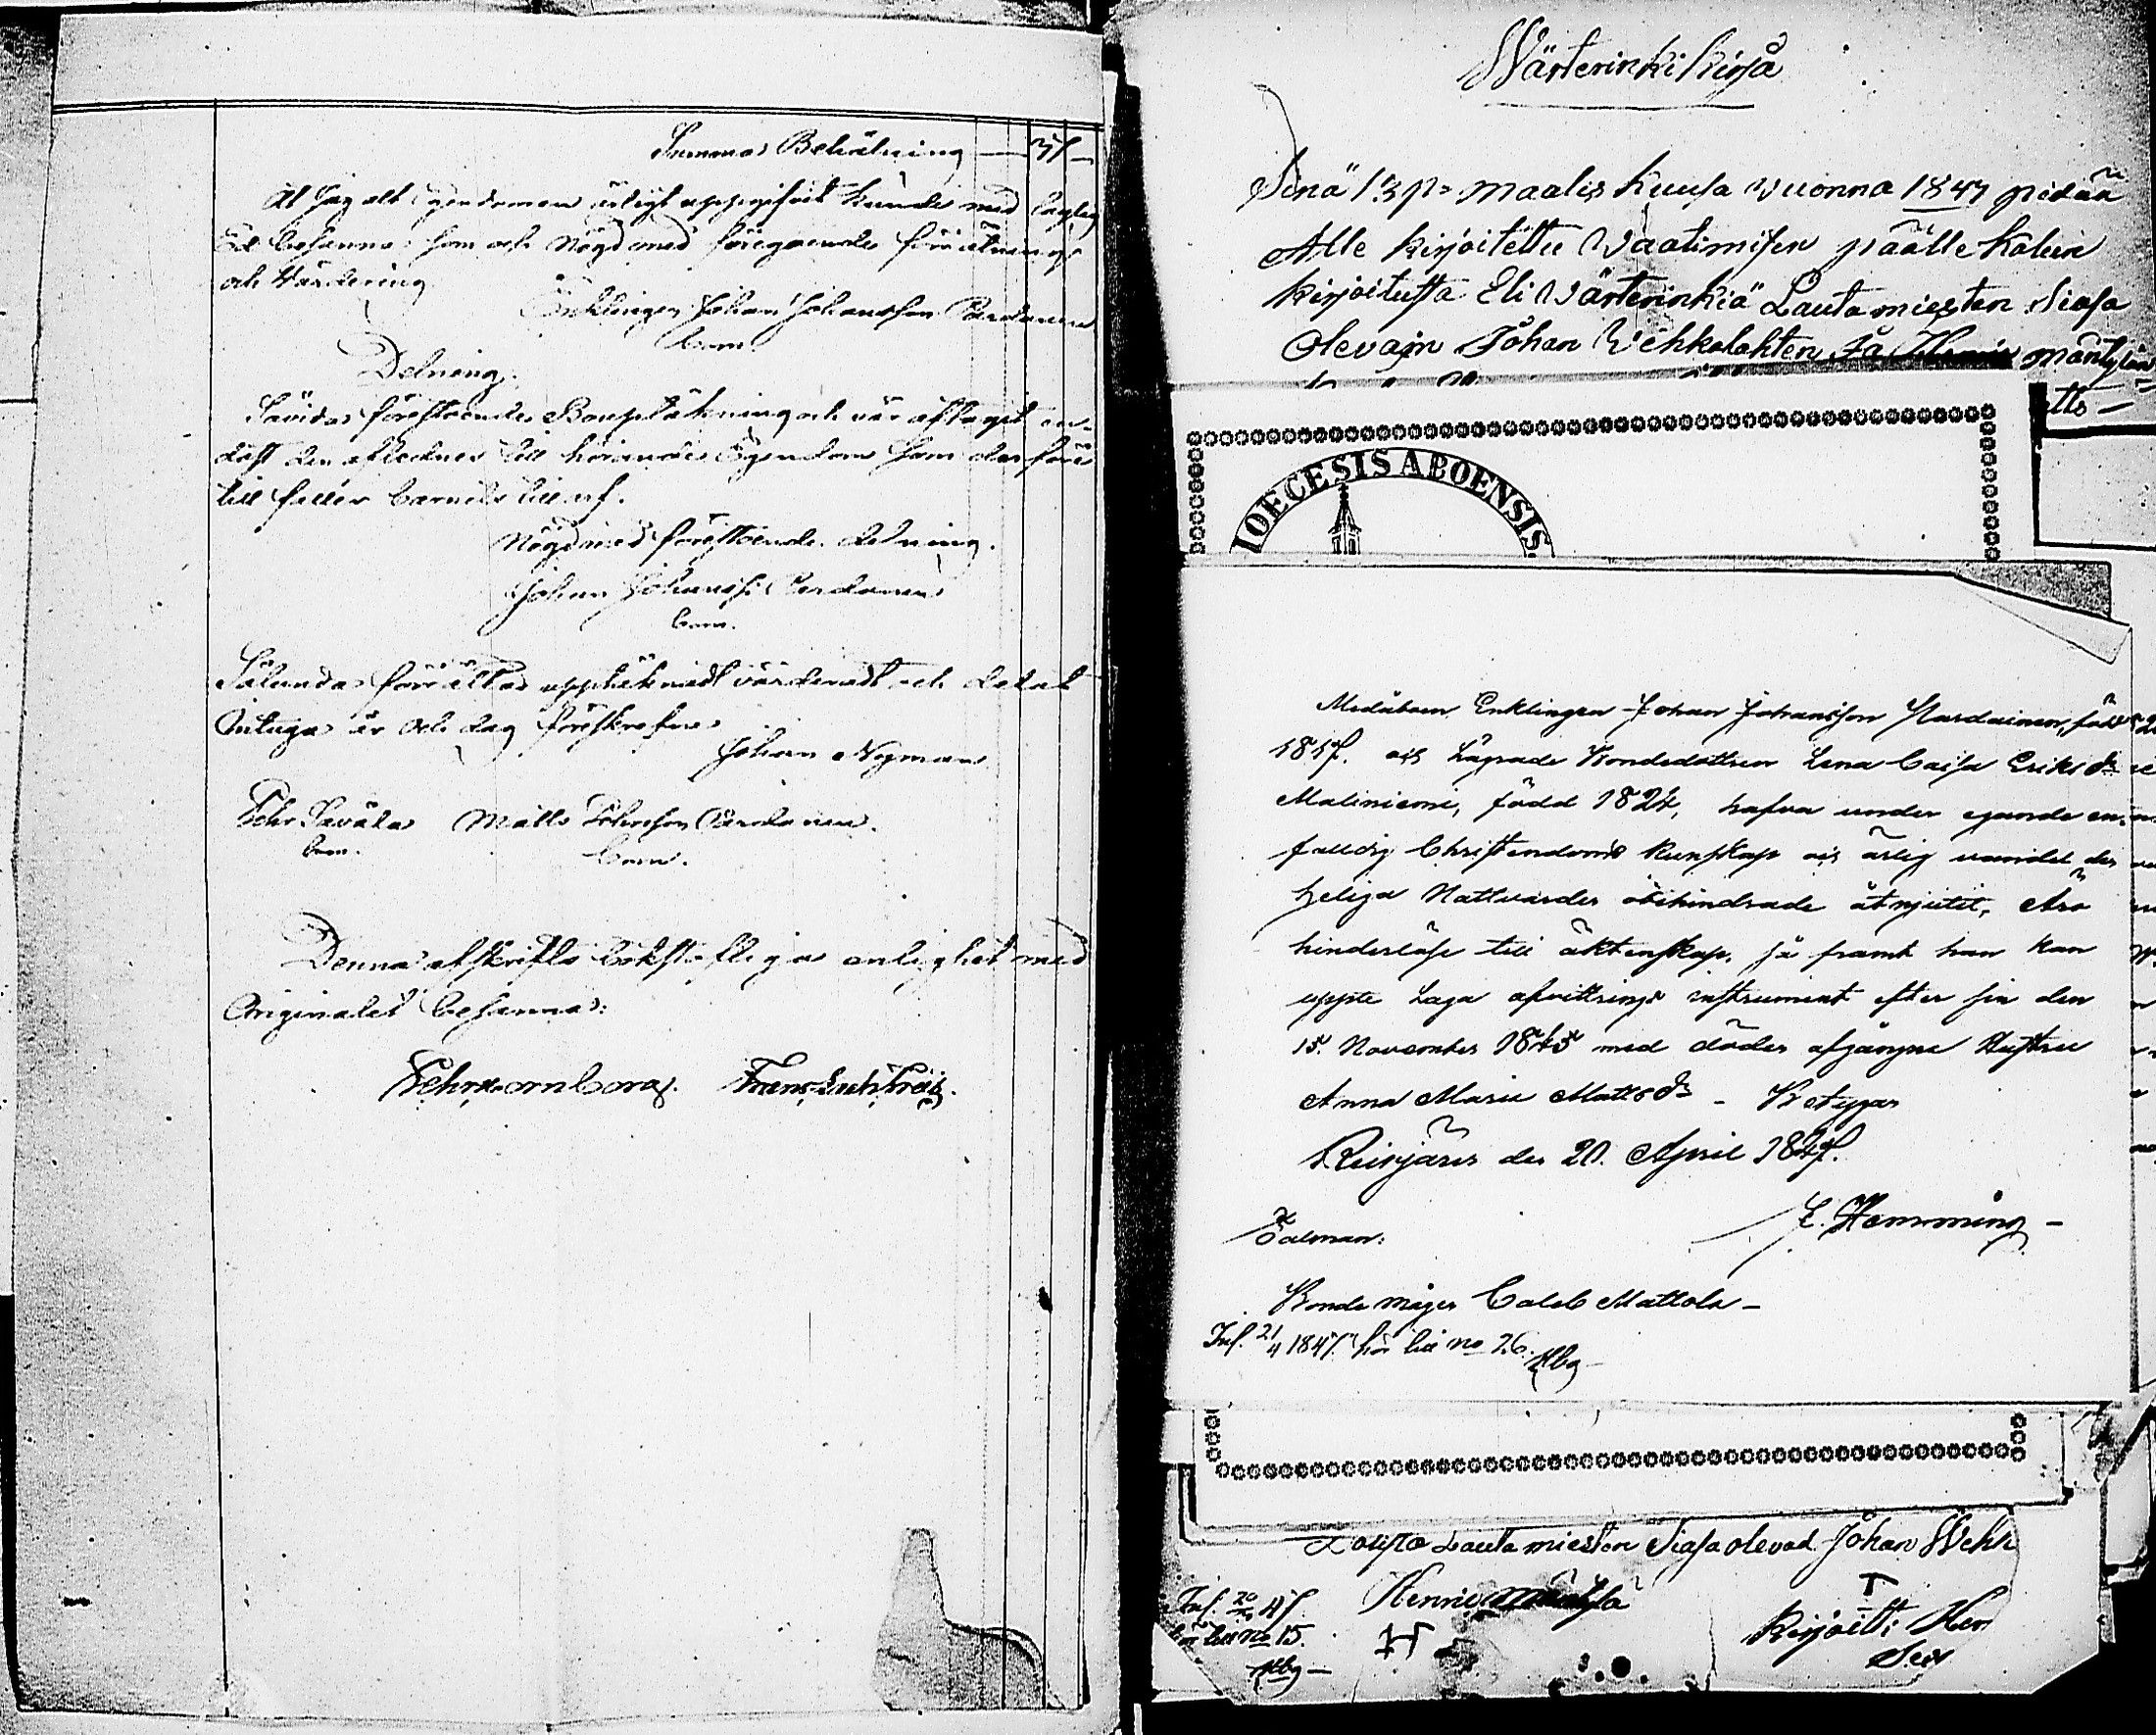 Summa Behålning — 31 —
At Jag alt Egendomen ärligt uppgifvit kunde med laglig
Ed besanna: som och Nögd med föregående förrätning
och Värdering
Enklingen Johan Johansson Pardanen
bom.
Delning.
Såvida föreståendes Bouptäkning och
den aflednes till hörande Egendom som der före
till faller barnets till arf.
Nögd med föreståendes delning.
Johan Johanss: Pardanen
bom.
Sålunda förrättad upptäknadt värderadt och delat
Intyga år och dag förskrefne
Johan Nyman
Savåla Matts Johnsson Pardanen.
bom. bom.
Denna afskrifts bokstafliga enlighet med
Originalet besanna:
Wärterinki kirja
Sinä 13 p= maalis kuusa vuonna 1847 pidän
Alle kirjoitettu Waatimisen päälle kalun
kirjoitussa Eli Wärterinkiä Lautamiesten Siasa
Olevain Johan Wehkalahten ja
tts —
IOECESIS ABOENSIS.
Medåboen Enklingen Johan Johansson Pardainen, född
1817. och Lägrade Bondedottren Lena Caisa Eriks dr
Maliniemi, född 1824, hafva under egande en-
faldig Christendoms kunskap och ärlig vandel den
heliga Nattvarden obehindrade åtnjutit, Äro
hinderlöse till äktenskap, så framt han kan
uppte Laga afvittrings instrument efter sin den
15. November 1845 med döden afgångna Hustru
Anna Maria Matts dr – Betygar
Reisjärvi den 20. April 1847.
E. Hemming –
Talman:
Bonde mågen Caleb Mattola –
Inl. 21/4 1847. hör lit no 26.
Hbg –
Lautamiesten Siasa olevad Johan Wehk
Inl. 20/4 47. Henric
lit no 15. Kirjoitti Hen
Hbg –